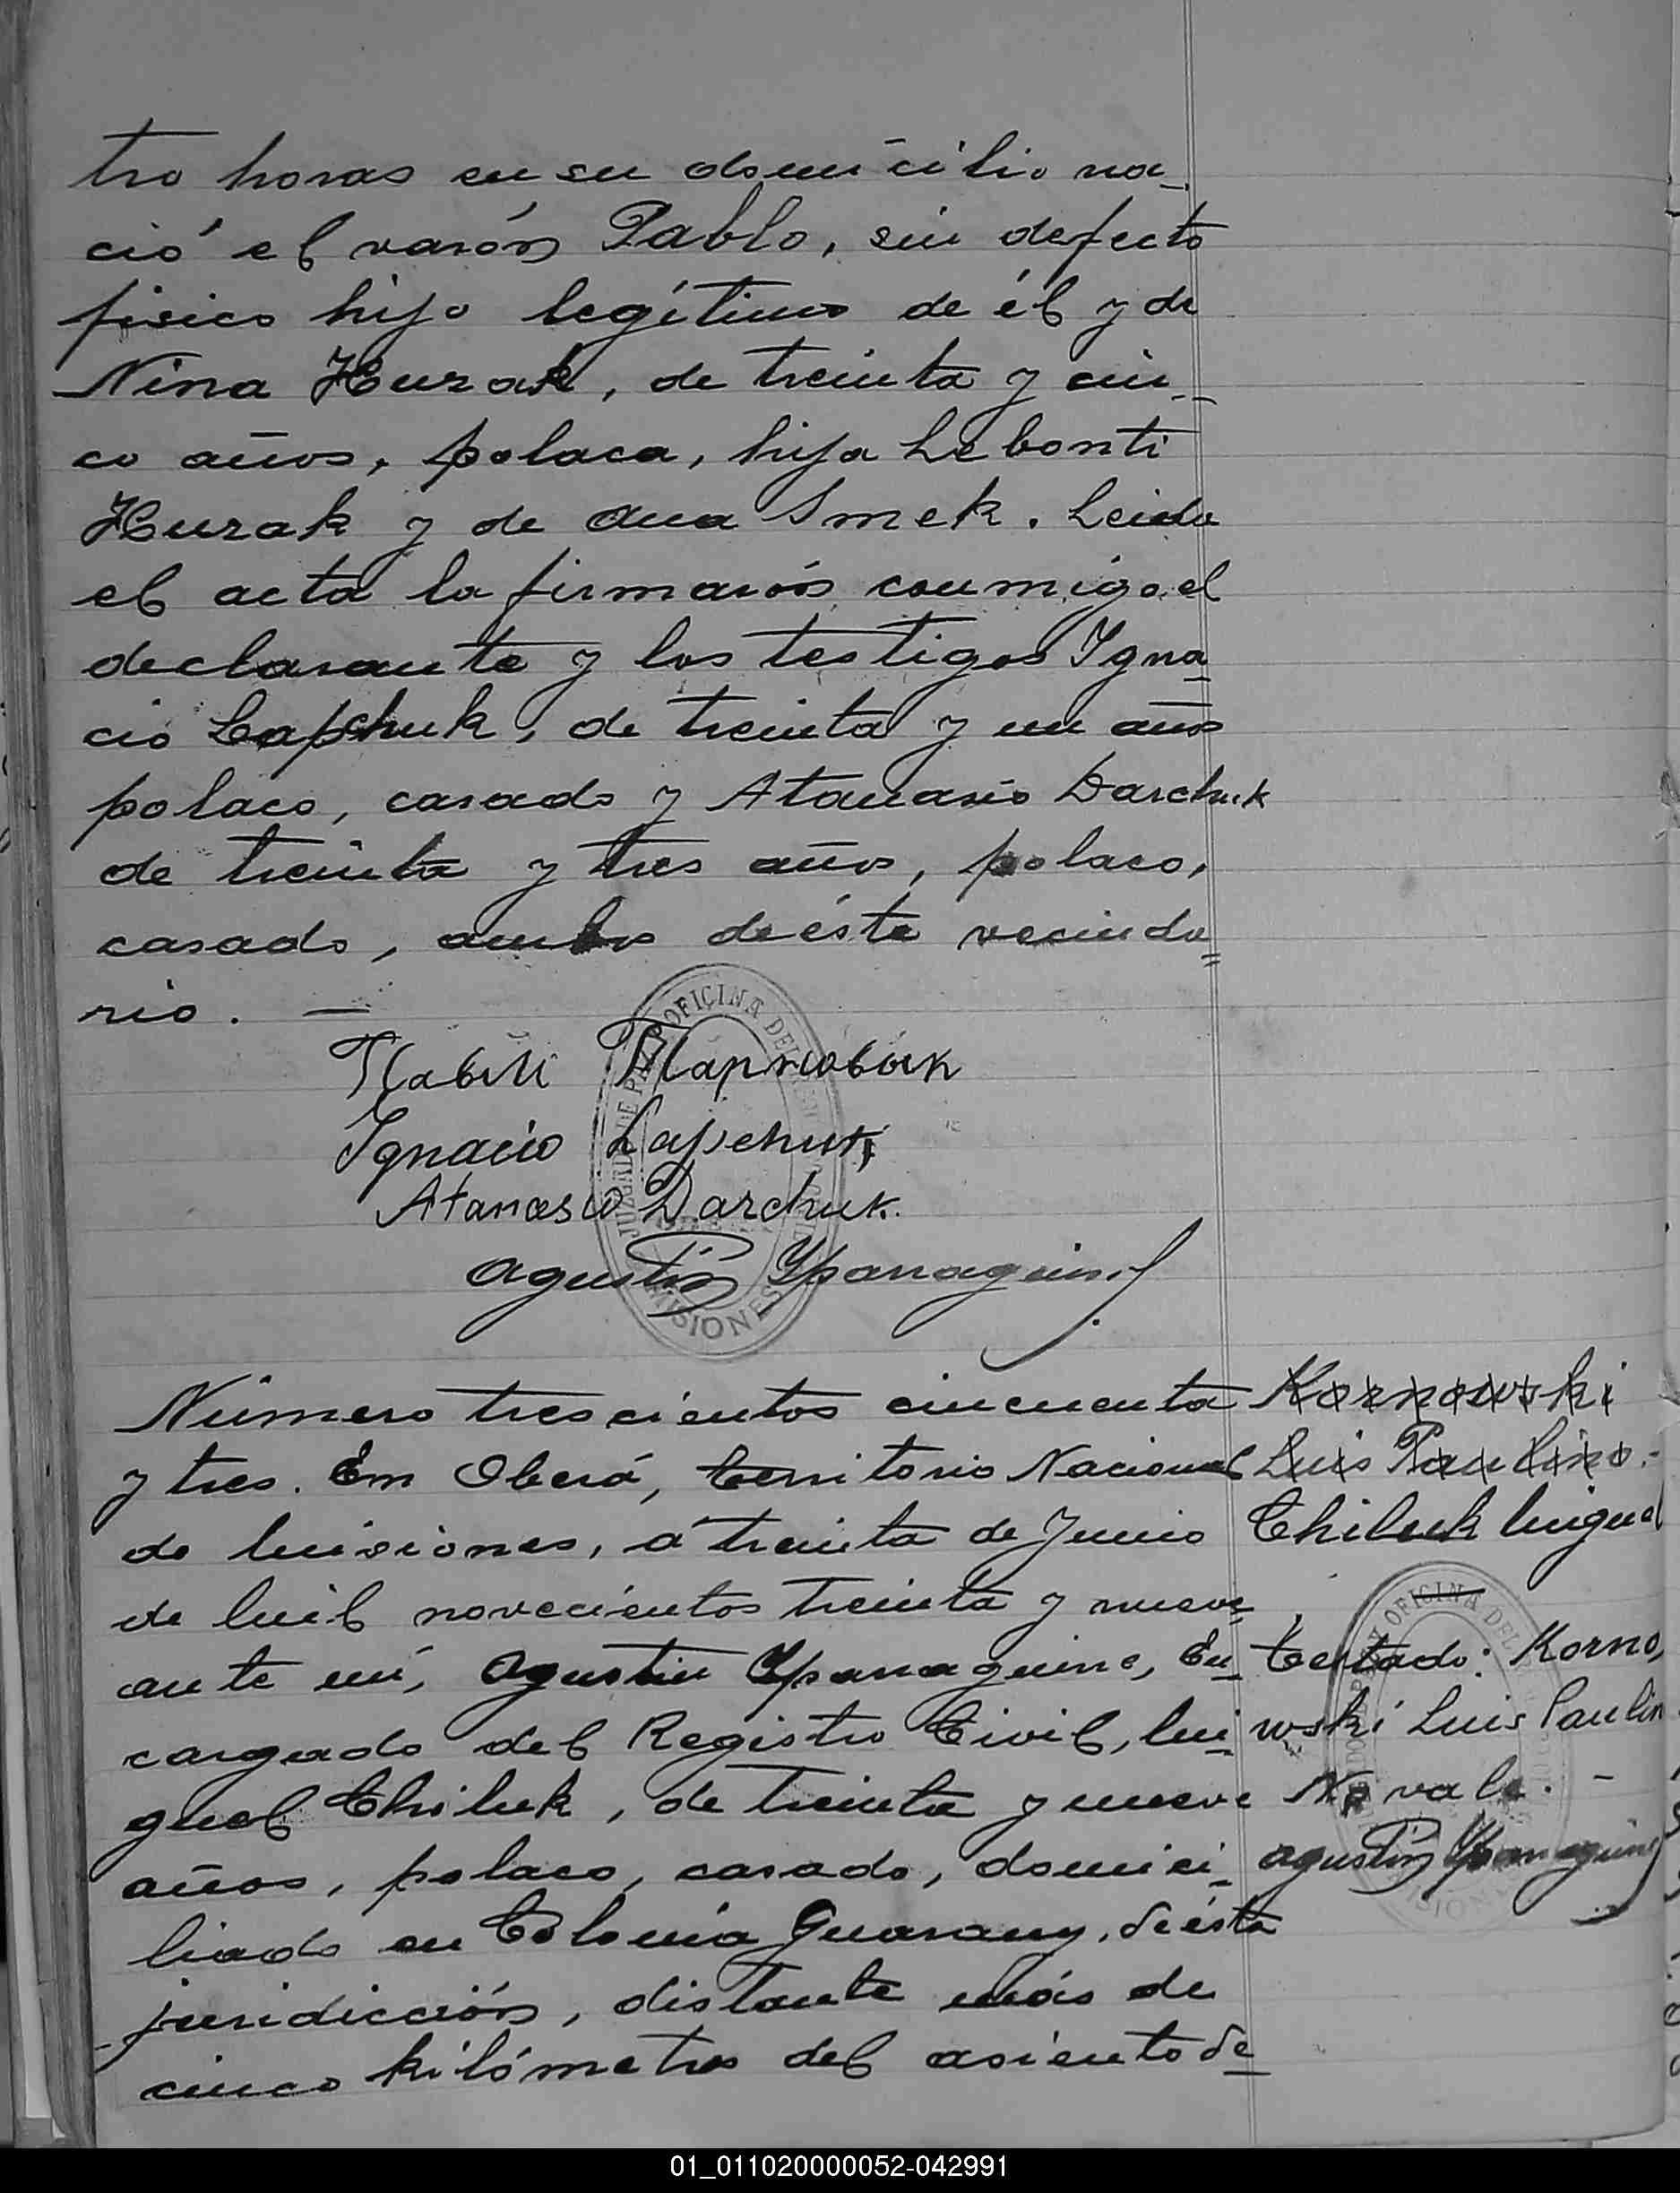 tro horas en su domicilio na-
ció el varón Pablo, sin defecto
fisico hijo legítimo de él y de
Nina Hurak, de treinta y cin-
co años, polaca, hija Lebonti
Hurak y de Ana Smek. Leida
el acta la firmarón conmigo el
declarante y los testigos Igna-
cio Lapchuk, de treinta y un años
polaco, casado y Atanasio Darchuk
de treinta y tres años, polaco,
casado, ambos de ésta vecinda=
rio. —
OFICINA DEL
Ignacio Lapchuk
Atanasio Darchuk.
Agustin Yparraguirre
MISIONES
Número trescientos cincuenta
y tres. En Oberá, Territorio Nacional
de Misiones, á treinta de Junio
de Mil novecientos treinta y nueve
ante mí, Agustin Yparraguirre, En-
cargado del Registro Civil, Mi-
guel Chiluk, de treinta y nueve
años, polaco, casado, domici-
liado en Colonia Guarany, de ésta
juridicción, distante más de
cinco kilómetros del asiento de-
Kornowski
Luis Paulino.-
Chiluk Miguel
OFICINA DEL
Testado: Korno,
wski Luis Paulin
No vale. -
Agustin Yparraguirre
01_011020000052-042991